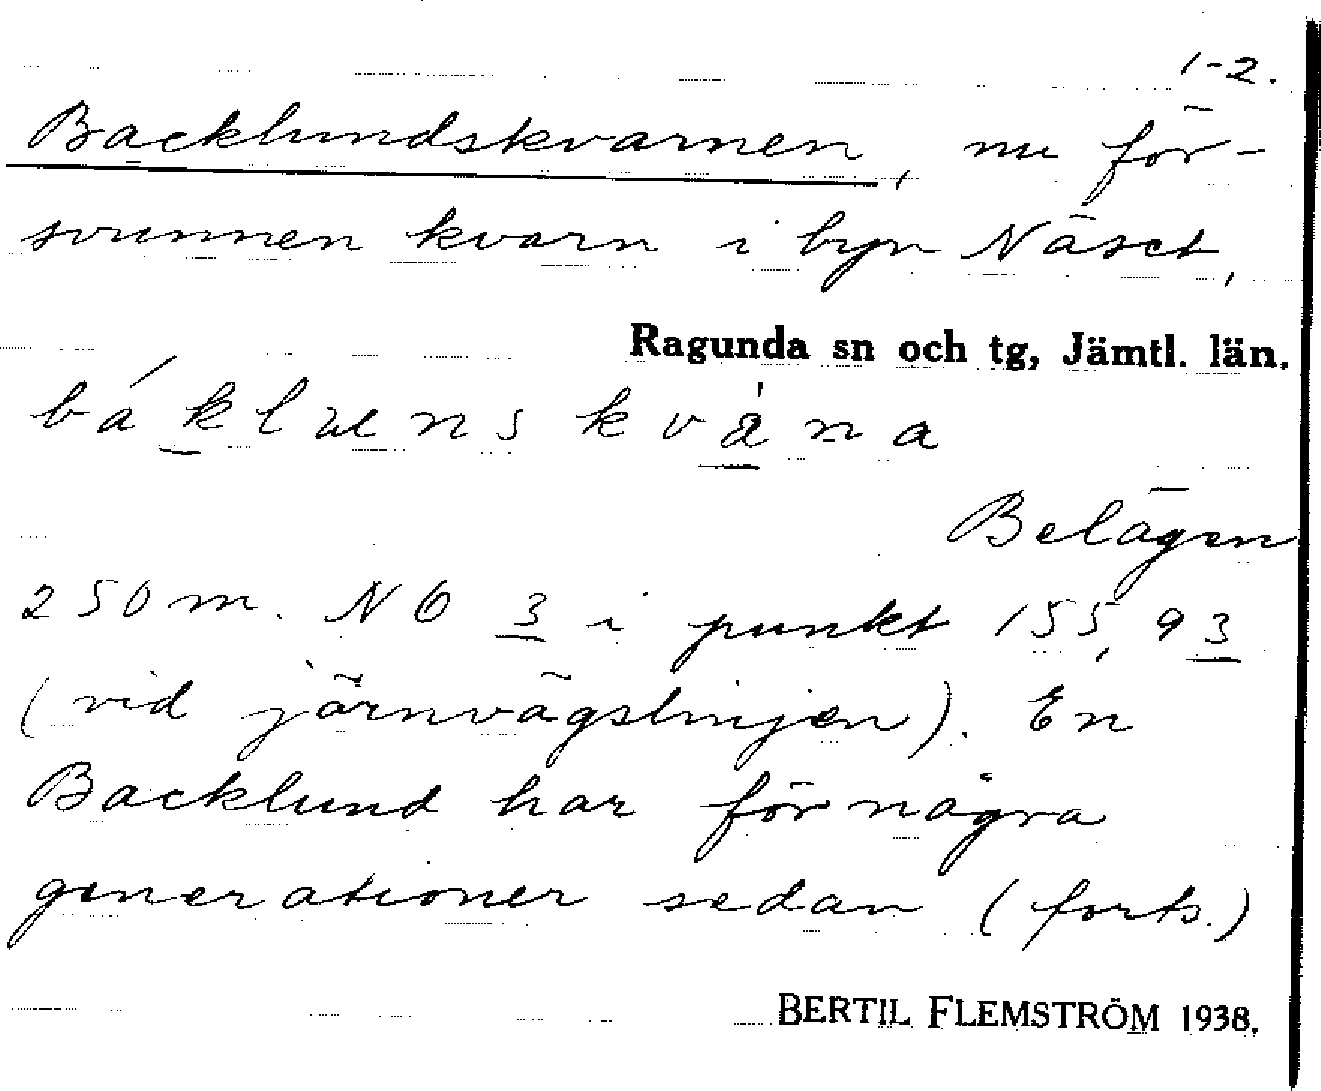 1-2.
Backlundskvarnen, nu för-
svunnen kvarn i byn Näset,
Ragunda sn och tg, Jämtl. län.
Belägen
250 m. NO 3 i punkt 155,93
(vid järnvägslinjen). En
Backlund har för några
generationer sedan (forts.)
BERTIL FLEMSTRÖM 1938.